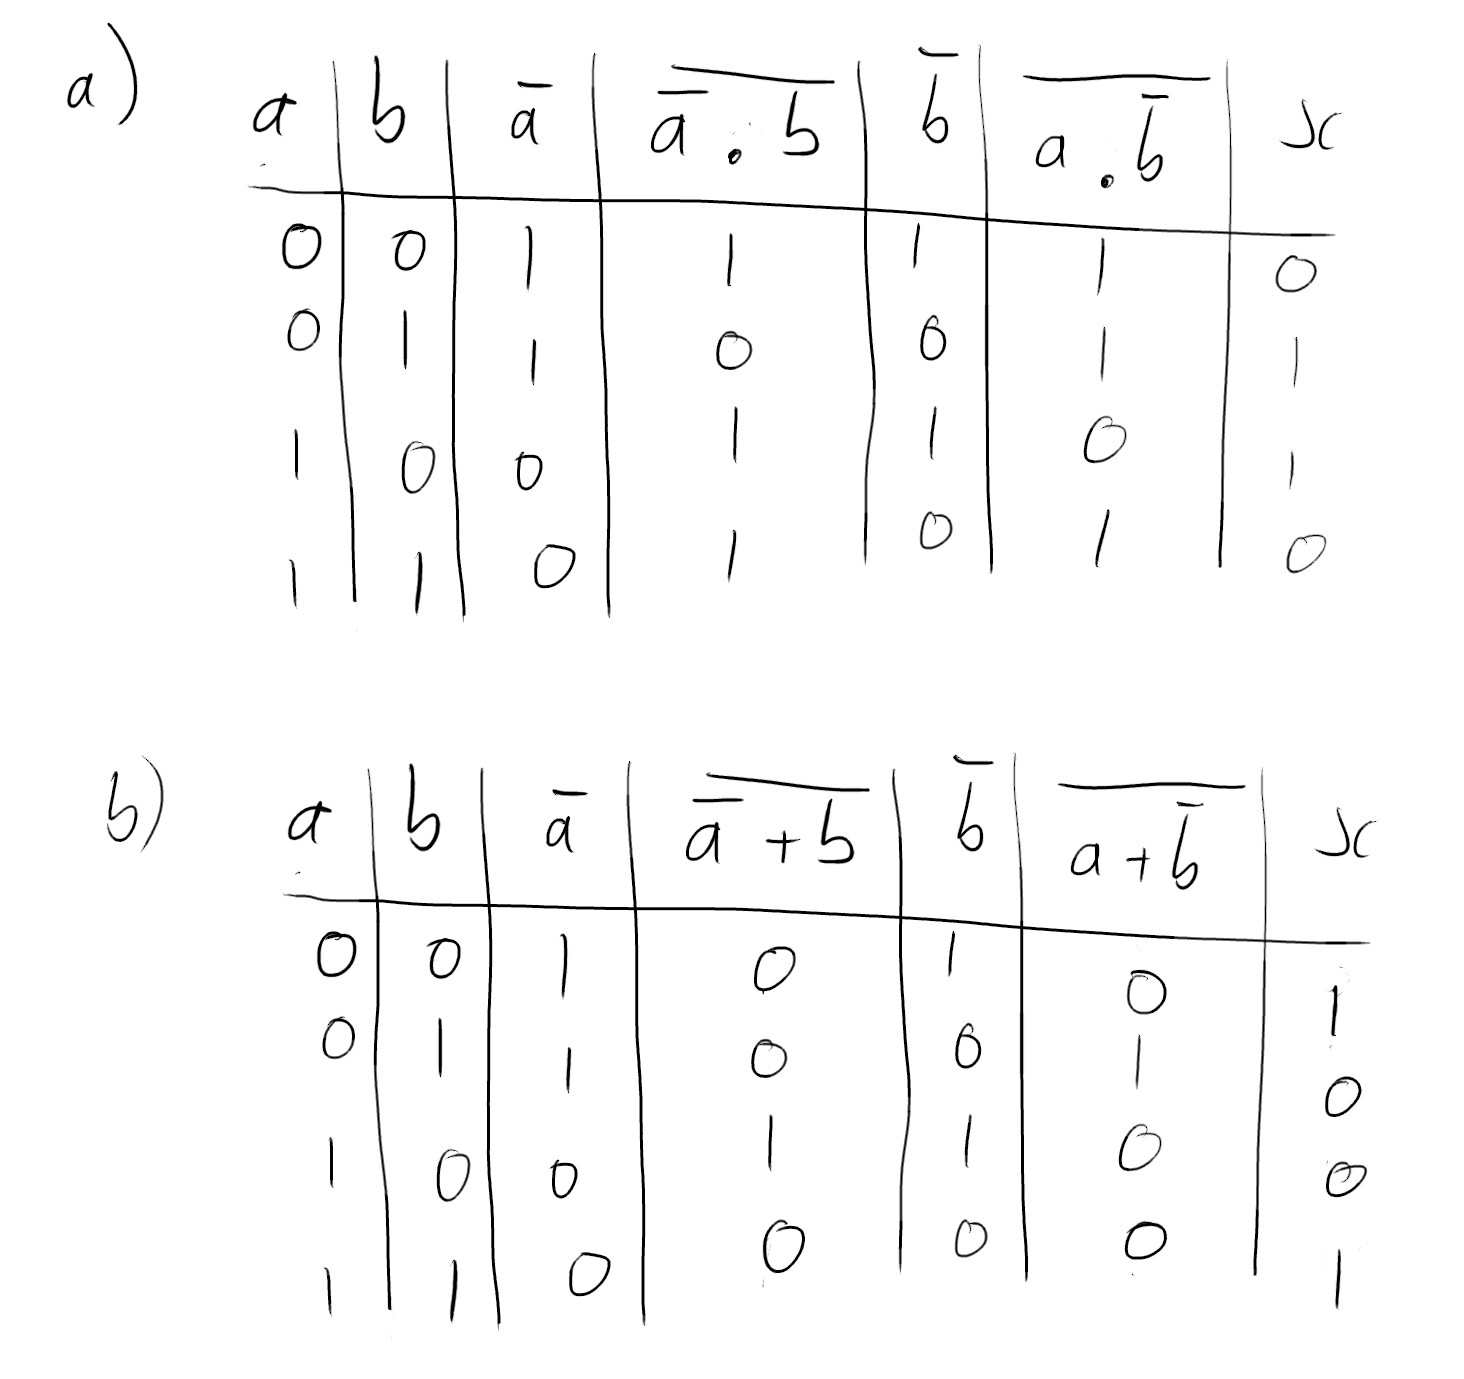 a) a b a̅ \overline{a̅ . b} b̅ \overline{a . b̅} x
0 0 1 1 1 1 0
0 1 1 0 0 1 1
1 0 0 1 1 0 1
1 1 0 1 0 1 0
b) a b a̅ \overline{a̅ + b} b̅ \overline{a + b̅} x
0 0 1 0 1 0 1
0 1 1 0 0 1 0
1 0 0 1 1 0 0
1 1 0 0 0 0 1